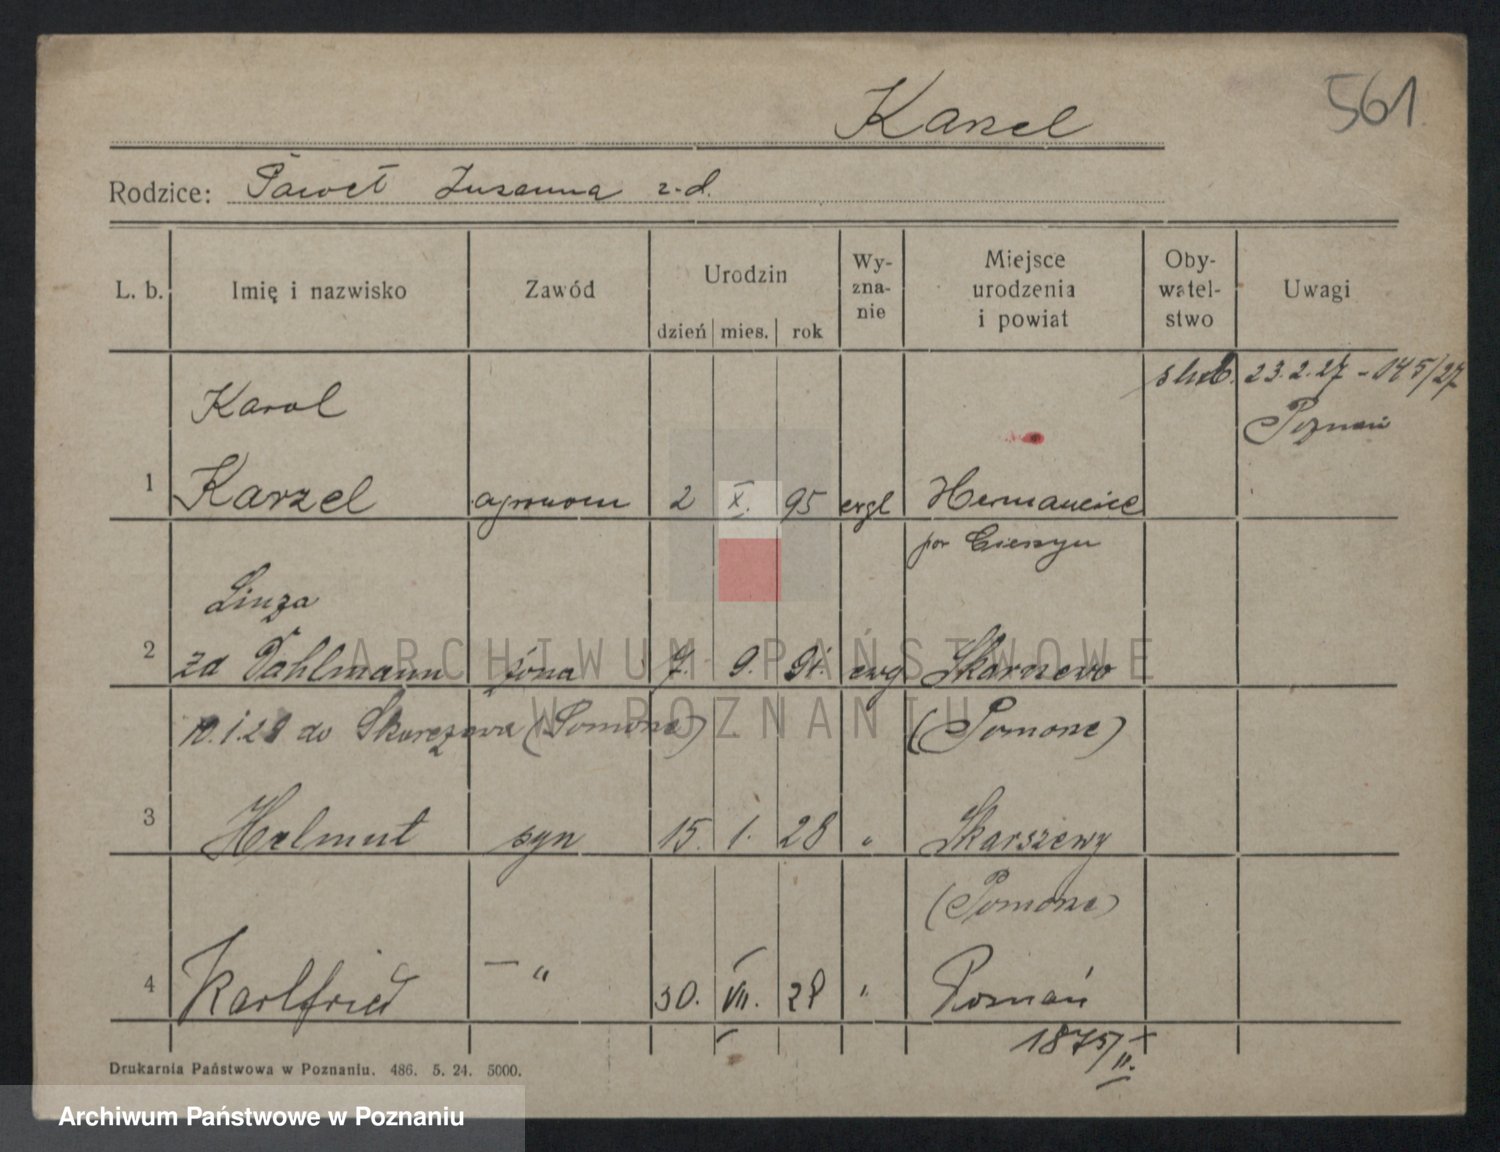 Karzel
561
Rodzice: Paweł Zuzanna z.d.
L. b. Imię i nazwisko Zawód Urodzin dzień mies. rok Wy-zna-nie Miejsce urodzenia i powiat Oby-watel-stwo Uwagi
ślub. 23.2.27 - 145/27
Poznań
Karol
1 Karzel agronom 2 X. 95 ewgl Hermanice
pow Cieszyn
Linza
2 zd Dahlmann żona 7. 9. 91. ewg Skarszewo
10.1.28 do Skarszewa (Pomorze) (Pomorze)
3 Helmut syn 15. 1. 28 " Skarszewy
(Pomorze)
4 Karlfried — " 30. VII. 29 " Poznań
1875/II.
Drukarnia Państwowa w Poznaniu. 486. 5. 24. 5000.
ARCHIWUM PAŃSTWOWE
W POZNANIU
Archiwum Państwowe w Poznaniu